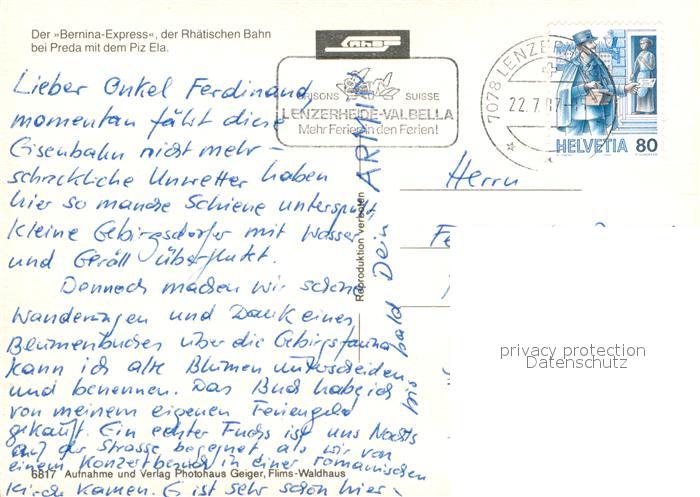 Der »Bernina-Express«, der Rhätischen Bahn
bei Preda mit dem Piz Ela.
Lieber Onkel Ferdinand,
momentan fährt diese
Eisenbahn nicht mehr –
schreckliche Unwetter haben
hier so manche Schiene unterspült,
kleine Gebirgsdörfer mit Wasser
und Geröll überflutet.
Dennoch machen wir schöne
Wanderungen und Dank eines
Blumenbuches über die Gebirgsfauna
kann ich alle Blumen unterscheiden
und benennen. Das Buch habe ich
von meinem eigenen Feriengeld
gekauft. Ein echter Fuchs ist uns Nachts
auf der Strasse begegnet als wir von
einem Konzertbesuch in einer romanischen
Kirche kamen. Es ist sehr schön hier –
bis bald Dein ARMIN
6817 Aufnahme und Verlag Photohaus Geiger, Flims-Waldhaus
Reproduktion verboten
GRISONS SUISSE
LENZERHEIDE-VALBELLA
Mehr Ferien in den Ferien!
7078 LENZER
22.7.87
HELVETIA 80
Herrn
Fe
privacy protection
Datenschutz